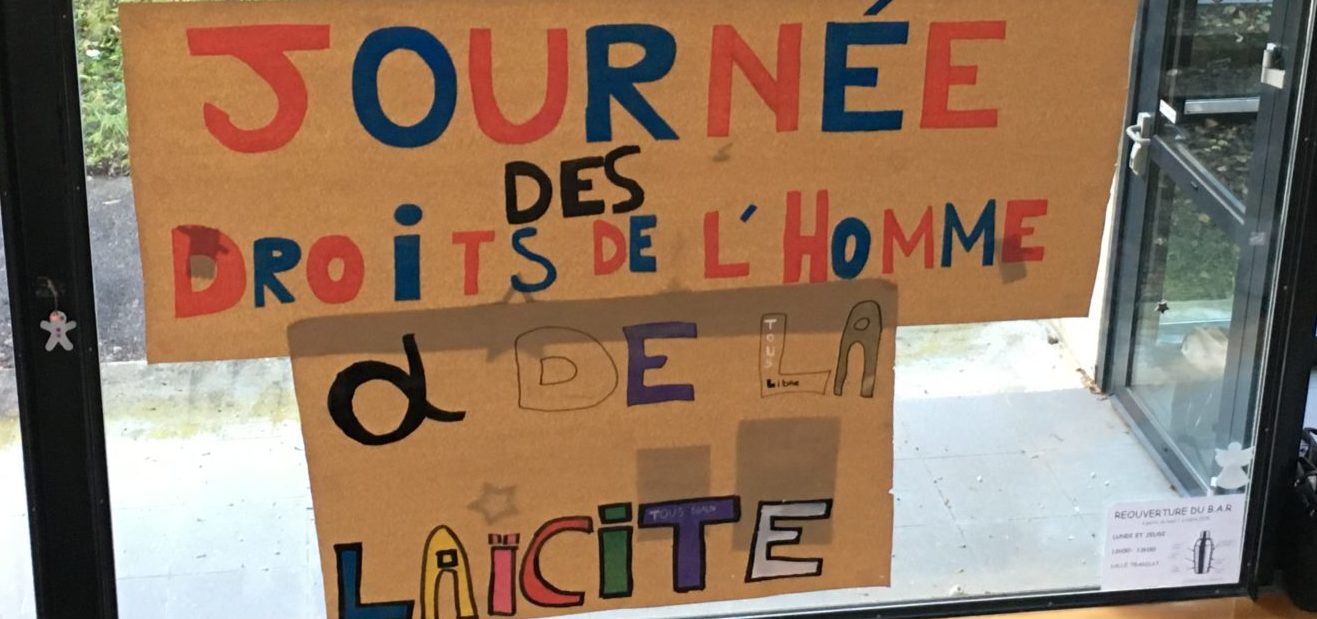 JOURNÉE
DES
DROiTS DE L'HOMME
& DE LA
TOUS
Libre
LAïCiTE
TOUS
REOUVERTURE DU B.A.R
LUNDI ET JEUDI